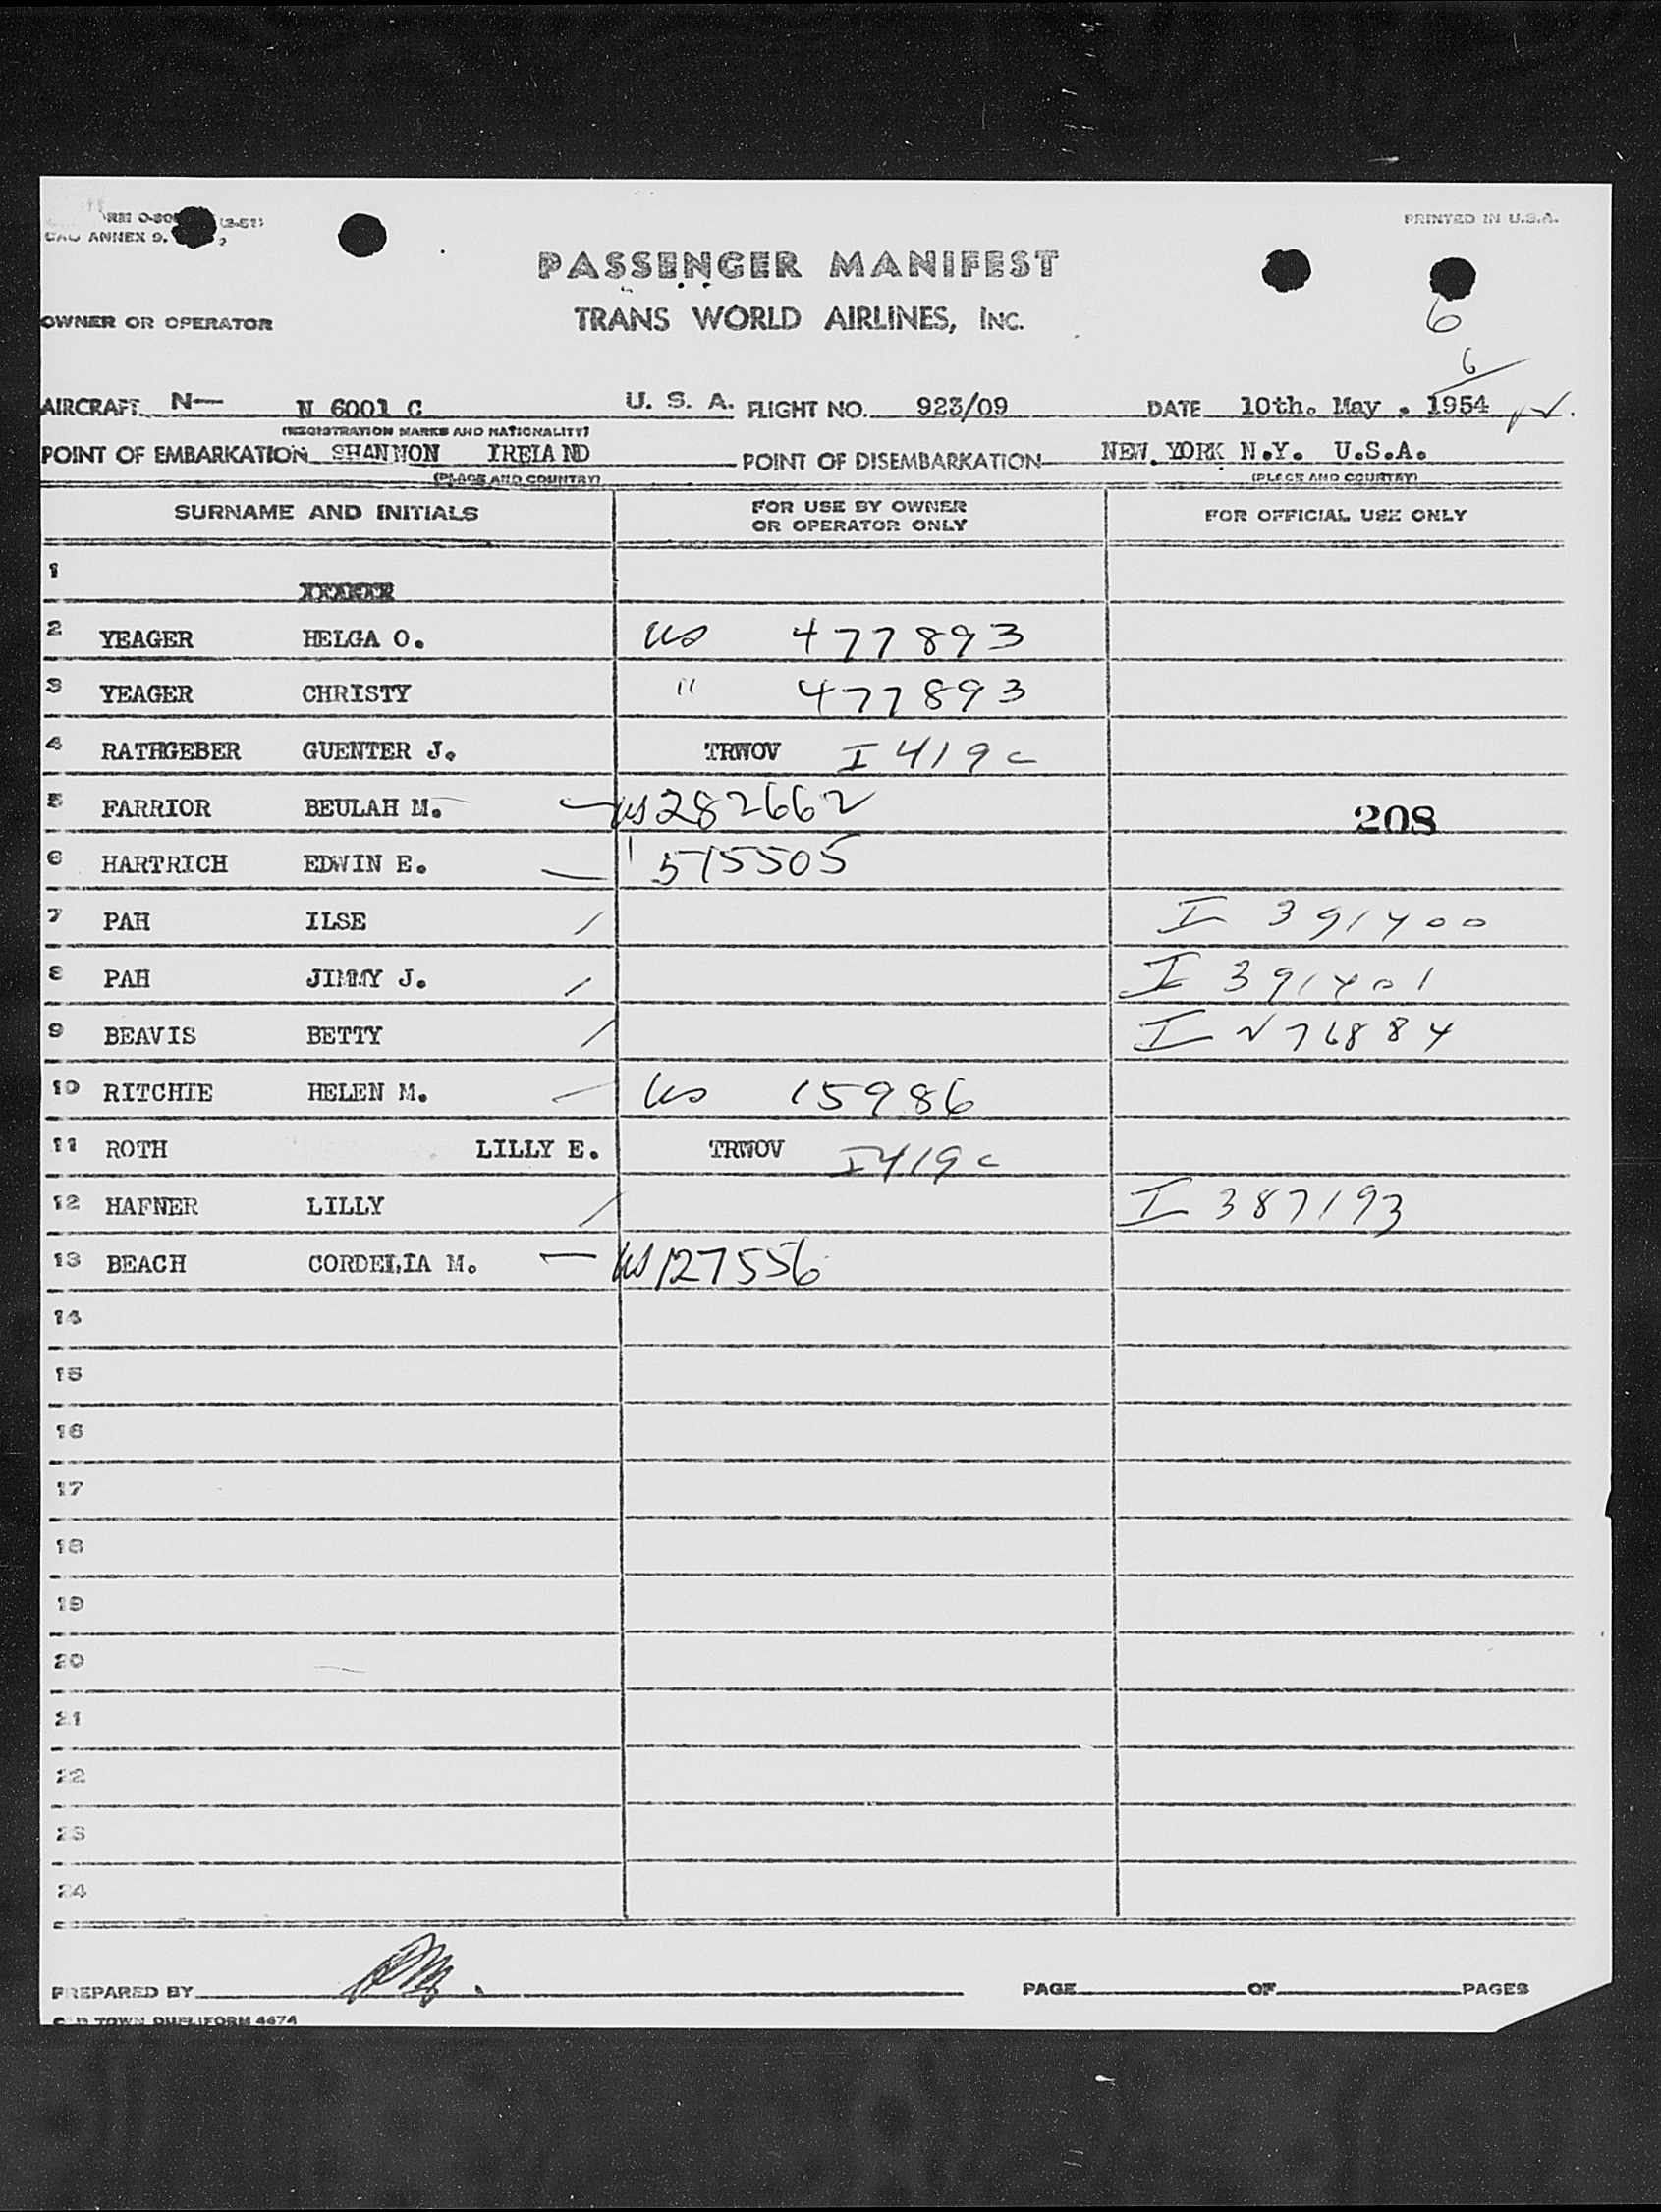 PRINTED IN U.S.A.
ANNEX 9.
PASSENGER MANIFEST
OWNER OR OPERATOR TRANS WORLD AIRLINES, INC.
6
6
AIRCRAFT N— N 6001 C U. S. A. FLIGHT NO. 923/09 DATE 10th. May . 1954
(REGISTRATION MARKS AND NATIONALITY)
POINT OF EMBARKATION SHANNON IRELAND POINT OF DISEMBARKATION NEW YORK N.Y. U.S.A.
(PLACE AND COUNTRY) (PLACE AND COUNTRY)
SURNAME AND INITIALS FOR USE BY OWNER OR OPERATOR ONLY FOR OFFICIAL USE ONLY
1
2 YEAGER HELGA O. US 477893
3 YEAGER CHRISTY " 477893
4 RATHGEBER GUENTER J. TRWOV I 419 c
5 FARRIOR BEULAH M. US 282662 208
6 HARTRICH EDWIN E. 515505
7 PAH ILSE / I 391400
8 PAH JIMMY J. / I 391401
9 BEAVIS BETTY / I 276884
10 RITCHIE HELEN M. US 15986
11 ROTH LILLY E. TRWOV I 419 c
12 HAFNER LILLY / I 387193
13 BEACH CORDELIA M. — US 127556
14
15
16
17
18
19
20
21
22
23
24
PREPARED BY PAGE OF PAGES
TOWN DUPLIFORM 4474